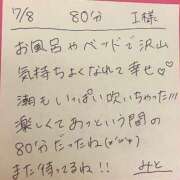 7/8 80分 I様
お風呂やベッドで沢山
気持ちよくなれて幸せ♡♡
潮もいっぱい吹いちゃった!!!
楽しくてあっという間の
80分だったね(*´∀`*)
また待ってるね!! みと